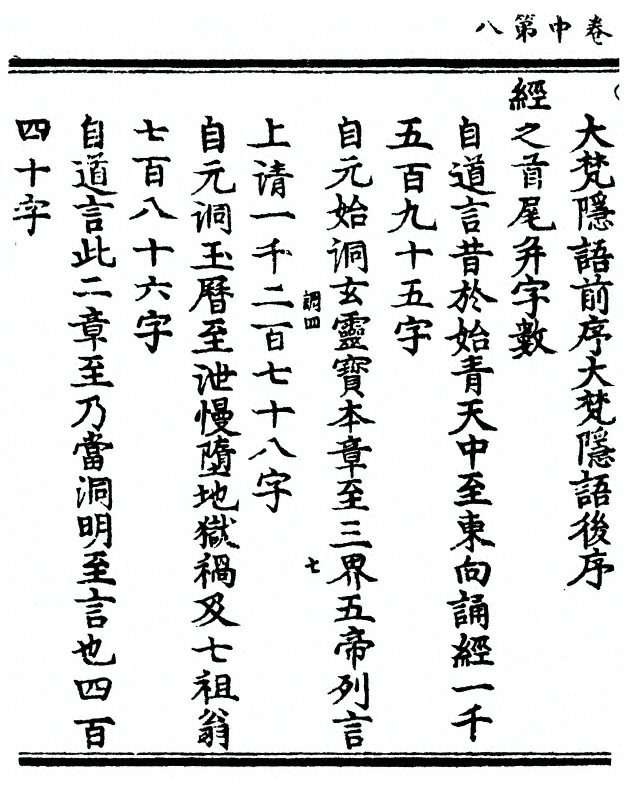 卷中第八
大梵隱語前序大梵隱語後序
經之首尾并字數
自道言昔於始青天中至東向誦經一千
五百九十五字
自元始洞玄靈寶本章至三界五帝列言
調四
七
上请一千二百七十八字
自元洞玉曆至泄慢墮地獄禍及七祖翁
七百八十六字
自道言此二章至乃當洞明至言也四百
四十字